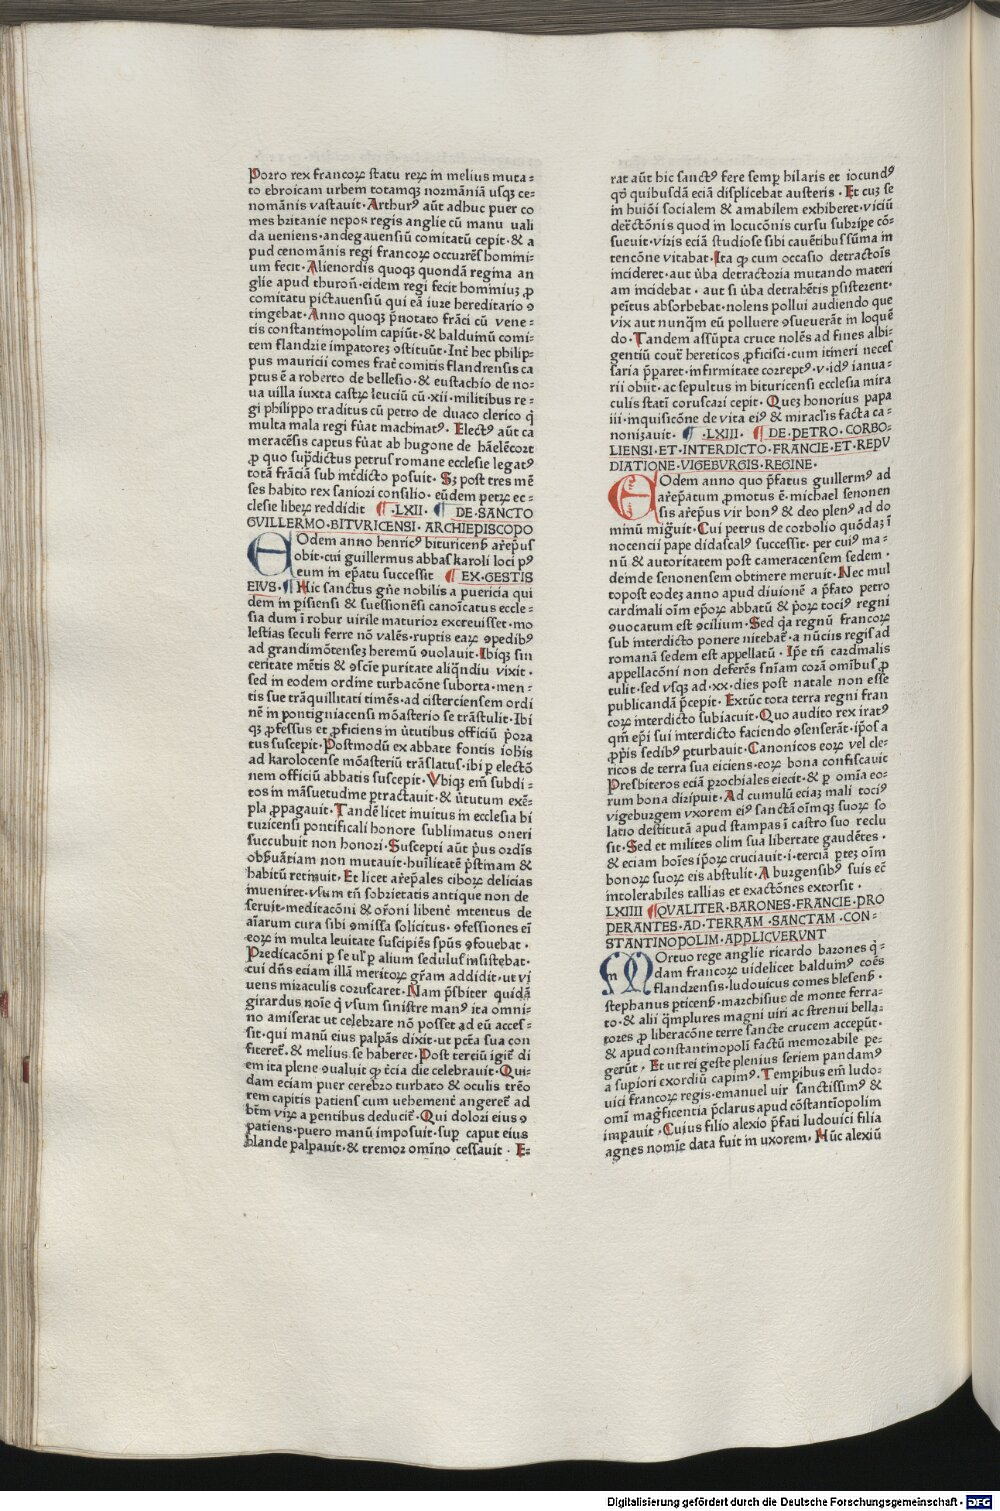 Porro rex francoꝝ statu reꝝ in melius muta⸗
to ebroicam urbem totamqꝫ normāniā usqꝫ ce⸗
nomānis vastauit· Arthurꝰ aūt adhuc puer co
mes britanie nepos regis anglie cū manu uali
da ueniens·andegauensiū comitatū cepit·& a
pud cenomānis regi francoꝝ occurrēs homini⸗
um fecit· Alienordis quoqꝫ quondā regina an
glie apud thuroñ·eidem regi fecit hominiuꝫ ꝓ
comitatu pictauensiū qui eā iure hereditario ꝯ
tingebat· Anno quoqꝫ p̄notato frāci cū vene⸗
tis constantinopolim capiūt·& balduinū comi⸗
tem flandrie imperatoreꝫ ꝯstituūt· Int̄ hec philip⸗
pus mauricii comes frat̄ comitis flandrensis ca
ptus ē a roberto de bellesio·& eustachio de no⸗
ua uilla iuxta castꝝ leuciū cū·xii·militibus re⸗
gi philippo traditus cū petro de duaco clerico q̄
multa mala regi fu̇at machinatꝰ· Electꝰ aūt ca
meracēsis captus fu̇at ab hugone de hāelēcort
ꝓ quo sup̄dictus petrus romane ecclesie legatꝰ
totā frāciā sub int̄dicto posuit· Sꝫ post tres mē
ses habito rex saniori consilio· eūdem petꝝ ec⸗
clesie libeꝝ reddidit ¶·LXII· ¶ DE·SANCTO
GVILLERMO·BITVRICENSI· ARCHIEPISCOPO
EOdem anno henricꝰ bituricenꝭ ar̄ep̄us
obit·cui guillermus abbas karoli loci pꝰ
eum in ep̄atu successit ¶ EX·GESTIS
EIVS· ¶ Hic sanctus gn̄e nobilis a puericia qui
dem in ꝑisiensi & suessionēsi canoīcatus eccle⸗
sia dum ī robur virile maturior excreuisset·mo
lestias seculi ferre nō valēs·ruptis eaꝝ ꝯpedibꝰ
ad grandimōtenseꝫ heremū ꝯuolauit· Ibiqꝫ sin
ceritate mētis & ꝯscīe puritate aliqn̄diu vixit·
sed in eodem ordine turbacōne suborta·men⸗
tis sue trāquillitati timēs·ad cisterciensem ordi
nē in pontigniacensi mōasterio se trāstulit· Ibi
qꝫ ꝓfessus et ꝓficiens in u̇tutibus officiū p̄ora
tus suscepit· Postmodū ex abbate fontis iohīs
ad karolocense mōasteriū trāslatus·ibi ꝑ electō
nem officiū abbatis suscepit· Vbiqꝫ em̄ subdi⸗
tos in māsuetudīne ꝑtractauit·& u̇tutum exē⸗
pla ꝓpagauit· Tandē licet inuitus in ecclesia bi
turicensi pontificali honore sublimatus oneri
succubuit non honori· Suscepti aūt p̄us ordīs
obꝭuātiam non mutauit·huīlitatē p̄stinam &
habitū retinuit· Et licet ar̄ep̄ales ciboꝝ delicias
inueniret·vsum tn̄ sobrietatis antique non de
seruit·meditacōni & or̄oni libent̄ intentus de
aīarum cura sibi ꝯmissa solicitus· ꝯfessiones eī
eoꝝ in multa leuitate suscipiēs sp̄us ꝯfouebat·
Predicacōni ꝑ se ul̓ ꝑ alium sedulus insistebat·
cui dn̄s eciam illā meritoꝝ gr̄am addidit·ut vi
uens miraculis coruscaret· Nam p̄sbiter quidā
girardus noīe q̄ vsum sinistre manꝰ ita omni⸗
no amiserat ut celebrare nō posset ad eū acces⸗
sit·qui manū eius palpās dixit·ut pcc̄ta sua con
fiteret̄·& melius se haberet· Post terciū igit̄ di
em ita plene ꝯualuit qꝓ t̄cia die celebrauit· Qui⸗
dam eciam puer cerebro turbato & oculis tr̄eo
rem capitis patiens cum uehement̄ angeret̄ ad
bt̄m viꝝ a ꝑentibus deducit̄· Qui dolori eius ꝯ
patiens·puero manū imposuit·suꝑ caput eius
blande palpauit·& tremor omīno cessauit · E⸗
rat aūt hic sanctꝰ fere semꝑ hilaris et iocundꝰ
qđ quibusdā eciā displicebat austeris · Et cuꝫ se
in huiōi socialem & amabilem exhiberet·viciū
der̄ctōnis quod in locucōnis cursu subriꝑe cō⸗
sueuit·viris eciā studiose sibi cauētibus sūma in
tencōne vitabat· Ita qꝓ cum occasio detractoīs
incideret·aut u̇ba detractoria mutando materi
am incidebat · aut si u̇ba detrahētis ꝑsisterent·
peītus absorbebat·nolens pollui audiendo que
vix aut nunqm̄ eū polluere ꝯsueuerāt in loquē
do· Tandem assūpta cruce nolēs ad fines albi⸗
gentiū cour̄ hereticos ꝓficisci·cum itineri neces
saria p̄paret·infirmitate correptꝰ·v·idꝰ ianua⸗
rii obiit·ac sepultus in bituricensi ecclesia mira
culis statī coruscari cepit· Queꝫ honorius papa
iii·inquisicōne de vita eiꝰ & miracl̓is facta ca⸗
nonizauit· ¶·LXIII· ¶ DE·PETRO·CORBO⸗
LIENSI·ET·INTERDICTO·FRANCIE·ET·REPV
DIATIONE·VIGEBVRGIS·REGINE·
EOdem anno quo p̄fatus guillermꝰ ad
ar̄ep̄atum ꝓmotus ē·michael senonen
sis ar̄ep̄us vir bonꝰ & deo plenꝰ ad do
minū mig̓uit· Cui petrus de corbolio quōdaꝫ ī
nocencii pape didascalꝰ successit· per cuiꝰ ma⸗
nū & autoritatem post cameracensem sedem·
deinde senonensem obtinere meruit· Nec mul
topost eodeꝫ anno apud diuionē a p̄fato petro
cardinali oīm ep̄oꝝ abbatū & p̄oꝝ tociꝰ regni
ꝯuocatum est ꝯcilium· Sed q̓a regnū francoꝝ
sub interdicto ponere nitebat̄·a nūciis regis ad
romanā sedem est appellatū · Ip̄e tn̄ cardinalis
appellacōni non deferēs sn̄iam corā omībus ꝓ
tulit·sed vsqꝫ ad·xx·dies post natale non esse
publicandā p̄cepit· Extūc tota terra regni fran
coꝝ interdicto subiacuit· Quo audito rex iratꝰ
qm̄ ep̄i sui interdicto faciendo ꝯsenserāt·ip̄os a
ꝓp̓is sedibꝰ ꝑturbauit· Canonicos eoꝝ vel cle⸗
ricos de terra sua eiciens·eoꝝ bona confiscauit
Presbiteros eciā ꝑrochiales eiecit·& ꝑ omīa eo⸗
rum bona diripuit· Ad cumulū eciaꝫ mali tociꝰ
vigeburgem vxorem eiꝰ sanctā oīmqꝫ suoꝝ so
latio destitutā apud stampas ī castro suo reclu
sit· Sed et milites olim sua libertate gaudētes·
& eciam hoīes ip̄oꝝ cruciauit·i·terciā ꝑteꝫ oīm
bonoꝝ suoꝝ eis abstulit· A burgensibꝰ suis ec̄
intolerabiles tallias et exactōnes extorsit·
LXIIII ¶QVALITER·BARONES·FRANCIE·PRO
PERANTES·AD·TERRAM·SANCTAM·CON⸗
STANTINOPOLIM·APPLICVERVNT
MOrtuo rege anglie ricardo barones q̓⸗
dam francoꝝ uidelicet balduinꝰ coēs
flandrensis·ludouicus comes blesenꝭ·
stephanus ꝑticenꝭ·marchisius de monte ferra⸗
to·& alii q̄mplures magni uiri ac strenui bella⸗
tores ꝓ liberacōne terre sancte crucem acceꝑūt·
& apud constantinopolī factū memorabile pe⸗
gerūt· Et ut rei geste plenius seriem pandamꝰ
a suꝑiori exordiū capimꝰ· Temꝑibus em̄ ludo⸗
uici francoꝝ regis·emanuel uir sanctissimꝰ &
omī mag̓ficentia p̄clarus apud cōstantīopolim
imꝑauit· Cuius filio alexio p̄fati ludouici filia
agnes nomīe data fuit in uxorem· Hūc alexiū
Digitalisierung gefördert durch die Deutsche Forschungsgemeinschaft - DFG